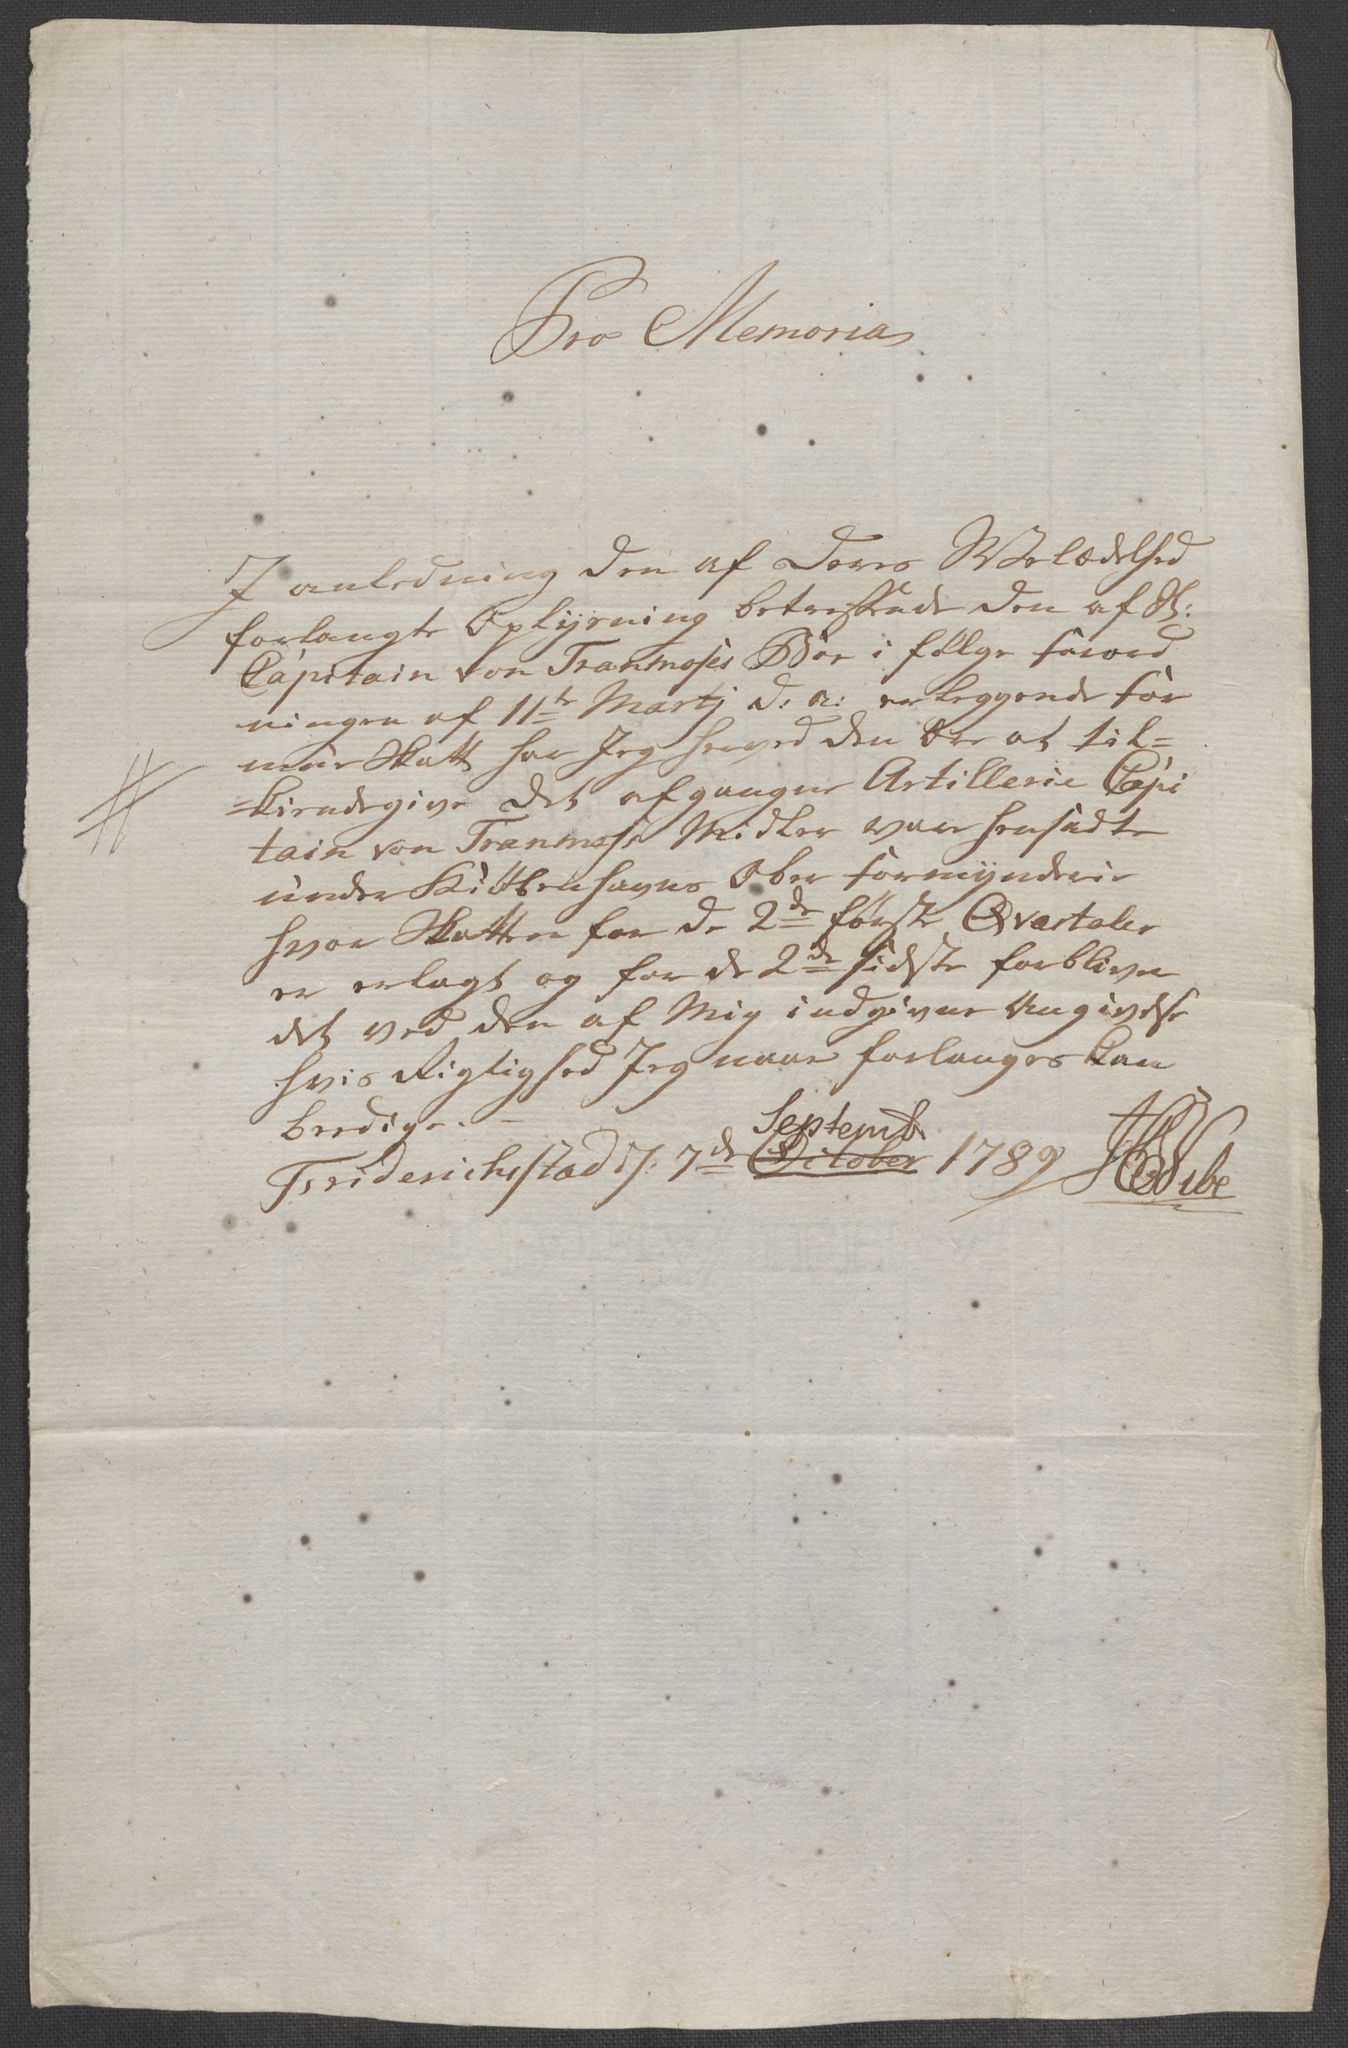 Pro Memoria
I anledning den af Deres Velædelhed
forlangte Oplysning betreffende den af H:
Capitain von Tranmoses Boe i følge Forord
ningen af 11te Martj d: a: erleggende For
mue Skatt har Jeg herved den Ære at til=
=kiendegive det afgangne Artillerie Capi
tain von Tranmose Midler vare hensadte
under Kiøbenhavns Ober Formynderie
hvor Skatten for de 2de første Qvartaler
er erlagt og for de 2de sidste forbliver
det ved den af Mig indgivne Angivelse
hvis Rigtighed Jeg naar forlanges kan
beedige. –
Septembr
Friderichstad d: 7de October 1789 Wibe